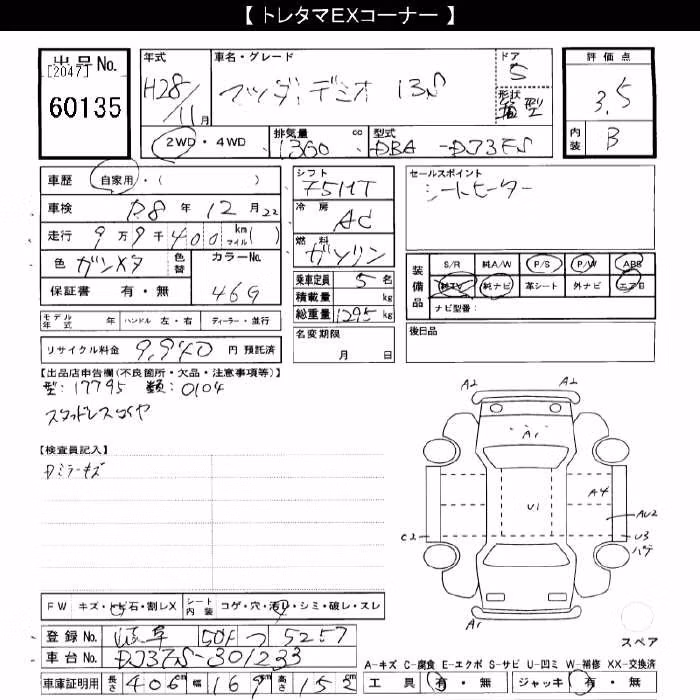 【 トレタマEXコーナー 】
出品No.
[2047]
60135
年式
H28/11月
車名・グレード
マツダ デミオ 13S
ドア
5
形状
箱型
評価点
3.5
内装
B
2WD・4WD
排気量 cc
1300
型式
DBA-DJ3FS
車歴 自家用・( )
車検 R8年12月22
走行 9万9千400 km マイル( )
色 ガンメタ
色替
カラーNo.
46G
保証書 有・無
シフト
F5MT
冷房
AC
燃料
ガソリン
乗車定員 5名
積載量 kg
総重量 1295kg
セールスポイント
シートヒーター
装備品
S/R 純A/W P/S P/W ABS
純TV 純ナビ 革シート 外ナビ エアB
ナビ型番:
モデル年式 年 ハンドル 左・右 ディーラー・並行
名変期限
月 日
後日品
リサイクル料金 9,940 円 預託済
【出品店申告欄(不良箇所・欠品・注意事項等)】
型:17795 類:0104
スタッドレスタイヤ
【検査員記入】
Dミラーキズ
A2 A2
A1
A4
U1
AU2
C2
U3
ハゲ
A1
スペア
FW キズ・トビ石・割レX
シート内装 コゲ・穴・汚レ・シミ・破レ・スレ
登録No. 岐阜 501 つ 5257
車台No. DJ3FS-301233
車庫証明用 長さ 406cm 幅 169cm 高さ 152cm
A-キズ C-腐食 E-エクボ S-サビ U-凹ミ W-補修 XX-交換済
工具 有・無 ジャッキ 有・無